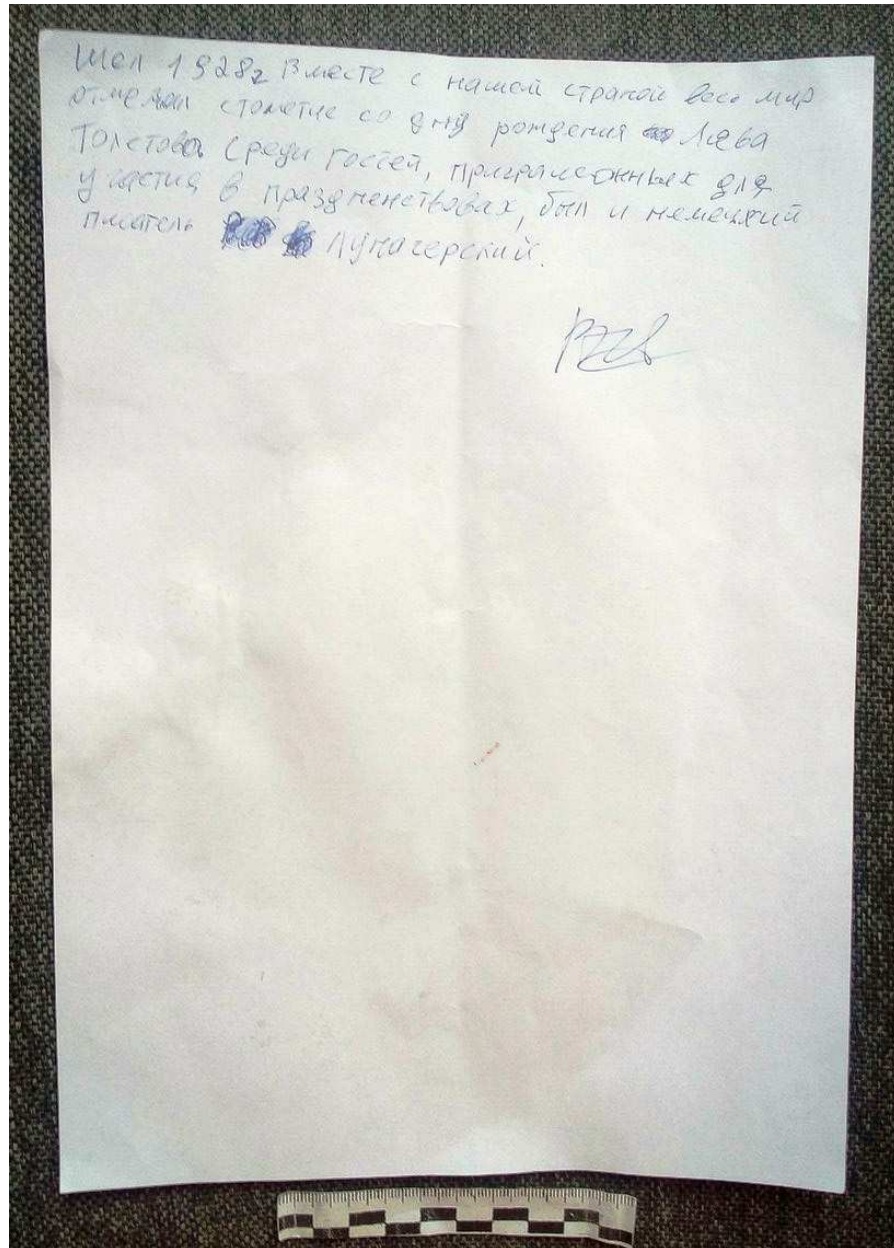 Шел 1928г Вместе с нашей страной весь мир
отмечал столетие со дну рождения Льва
Толстова Среди гостей, пригралсонных для
участия в праздненствовах, был и немецкий
писатель Луначерский.